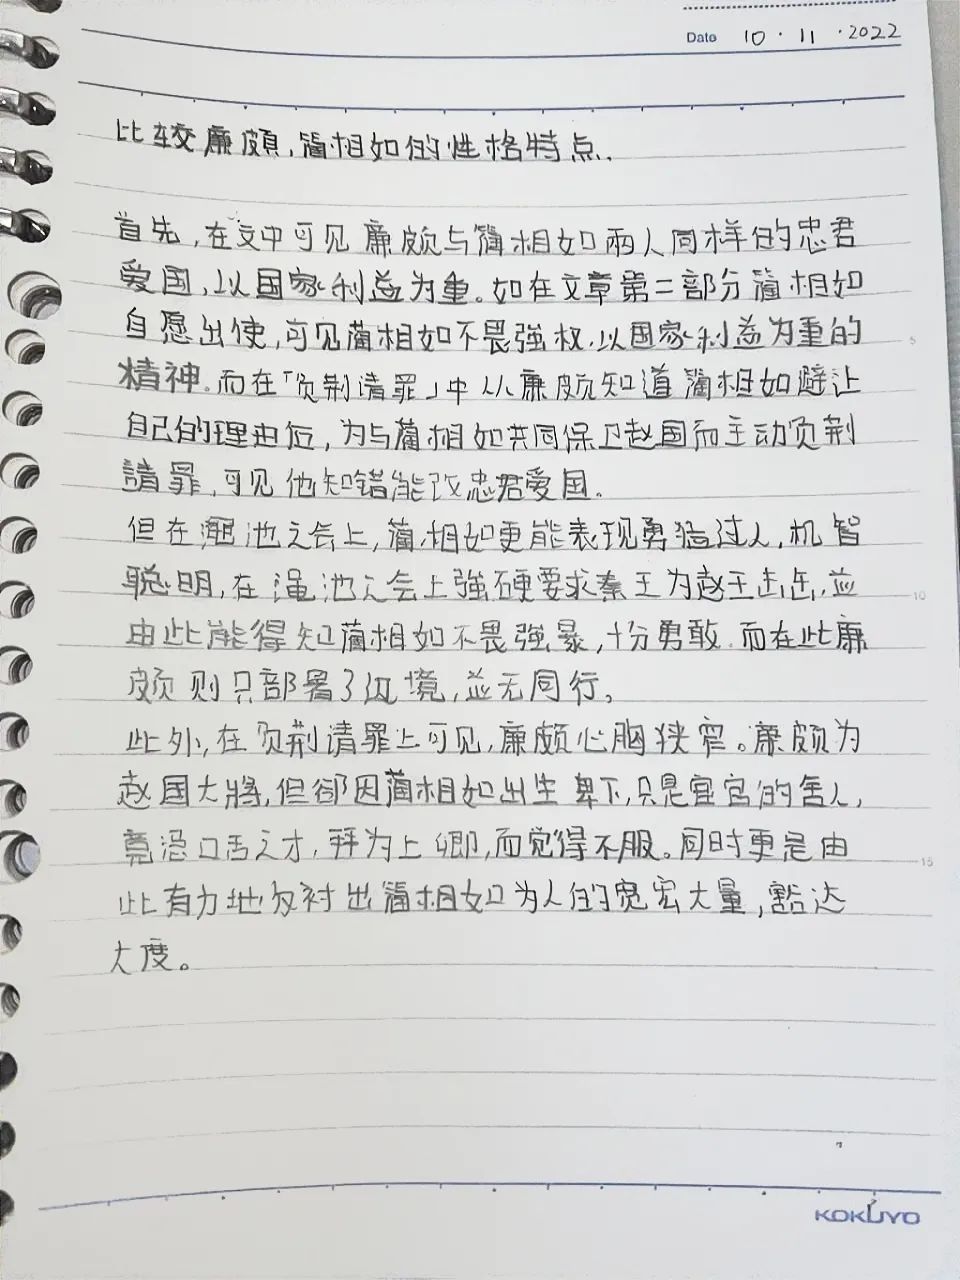 Date 10 · 11 · 2022
比较廉頗,蔺相如的性格特点.
首先,在文中可见廉颇与蔺相如兩人同样的忠君
爱国,以国家利益为重。如在文章第二部分蔺相如
自愿出使,可见蔺相如不畏強权,以国家利益为重的
精神.而在「负荆请罪」中从廉颇知道蔺相如避让
自己的理由后,为与蔺相如共同保卫赵国而主动负荆
請罪,可见他知错能改忠君爱国。
但在渑池之会上,蔺相如更能表现勇猛过人,机智
聪明,在渑池之会上強硬要求秦王为赵王击缶,並
由此能得知蔺相如不畏強暴,十分勇敢.而在此廉
颇则只部署了边境,並无同行。
此外,在负荆请罪上可见,廉颇心胸狭窄。廉颇为
赵国大將,但卻因蔺相如出生卑下,只是宦官的舍人,
凭口舌之才,拜为上卿,而觉得不服。同时更是由
此有力地反衬出蔺相如为人的宽宏大量,豁达
大度。
5
10
15
KOKUYO